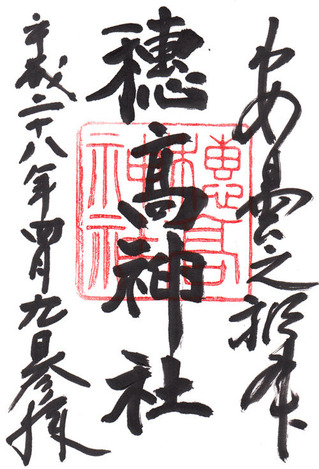 安曇之総社
穂高神社
平成二十八年四月九日参拝
穂高神社